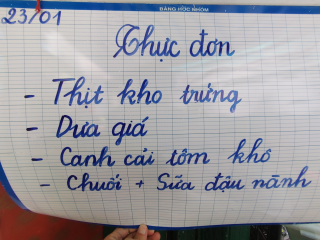 BẢNG HỌC NHÓM
23/01
Thực đơn
- Thịt kho trứng
- Dưa giá
- Canh cải tôm khô
- Chuối + Sữa đậu nành